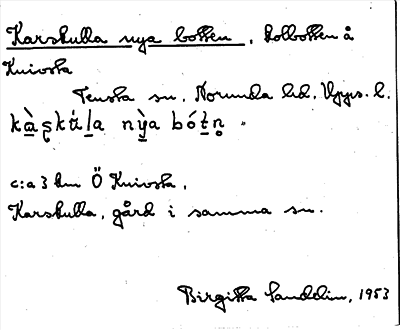 Karskulla nya botten, kolbotten å
Knivsta
Tensta sn, Norunda hd, Upps. l.
kàskúla nỳa bótn̥.
c:a 3 km Ö Knivsta,
Karskulla, gård i samma sn.
Birgitta Sandelin, 1953